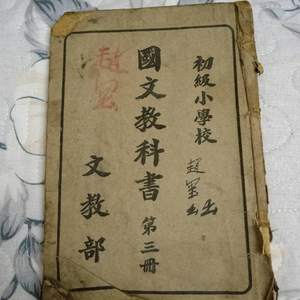 初級小學校
國文教科書 第三冊
文教部